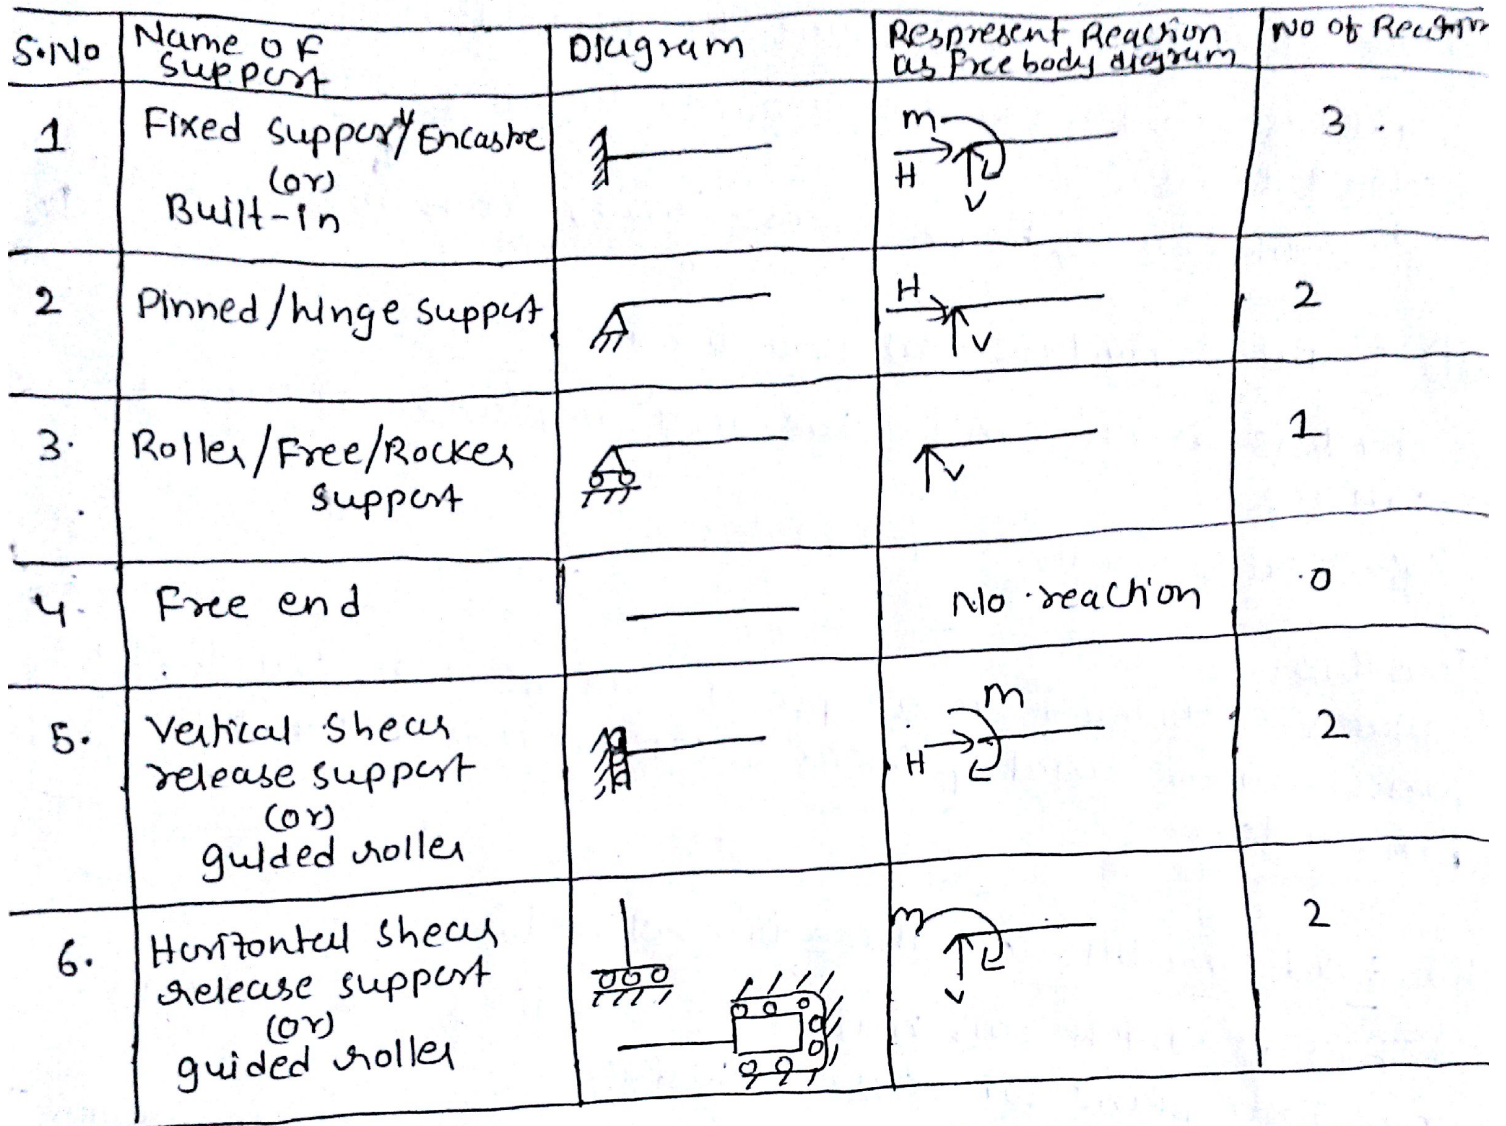 S.No
Name of
support
Diagram
Respresent Reaction
as free body diagram
No of Reaction
1
Fixed support/Encastre
(or)
Built-in
m
H
V
3.
2
Pinned/hinge support
H
V
2
3.
Roller/Free/Rocker
support
V
1
4.
Free end
No reaction
0
5.
Vertical shear
release support
(or)
guided roller
m
H
2
6.
Horizontal shear
release support
(or)
guided roller
m
V
2